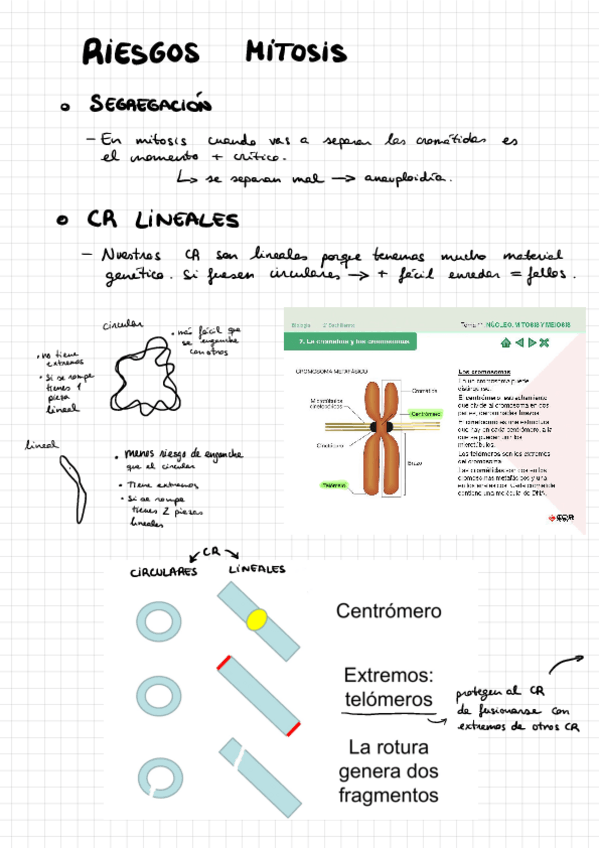 RIESGOS MITOSIS
• SEGREGACIÓN
– En mitosis cuando vas a separar las cromátidas es
el momento + crítico.
↳ se separan mal → aneuploidía.
• CR LINEALES
– Nuestros CR son lineales porque tenemos mucho material
genético. Si fuesen circulares → + fácil enredar = fallos.
circular
• más fácil que
se enganche
con otros
• no tiene
extremos
• Si se rompe
tienes 1
pieza
lineal
lineal
• menos riesgo de enganche
que el circular
• Tiene extremos
• Si se rompe
tienes 2 piezas
lineales
Biología
2º Bachillerato
NÚCLEO, MITOSIS Y MEIOSIS
2. La cromatina y los cromosomas
CROMOSOMA METAFÁSICO
Cromátida
Microtúbulos
cinetocóricos
Centrómero
Cinetócoro
Brazo
Telómero
Los cromosomas
El centrómero, estrechamiento
que divide al cromosoma en dos
Los telómeros son los extremos
del cromosoma.
contiene una molécula de DNA.
CR
CIRCULARES
LINEALES
Centrómero
Extremos:
telómeros
protegen al CR
de fusionarse con
extremos de otros CR
La rotura
genera dos
fragmentos